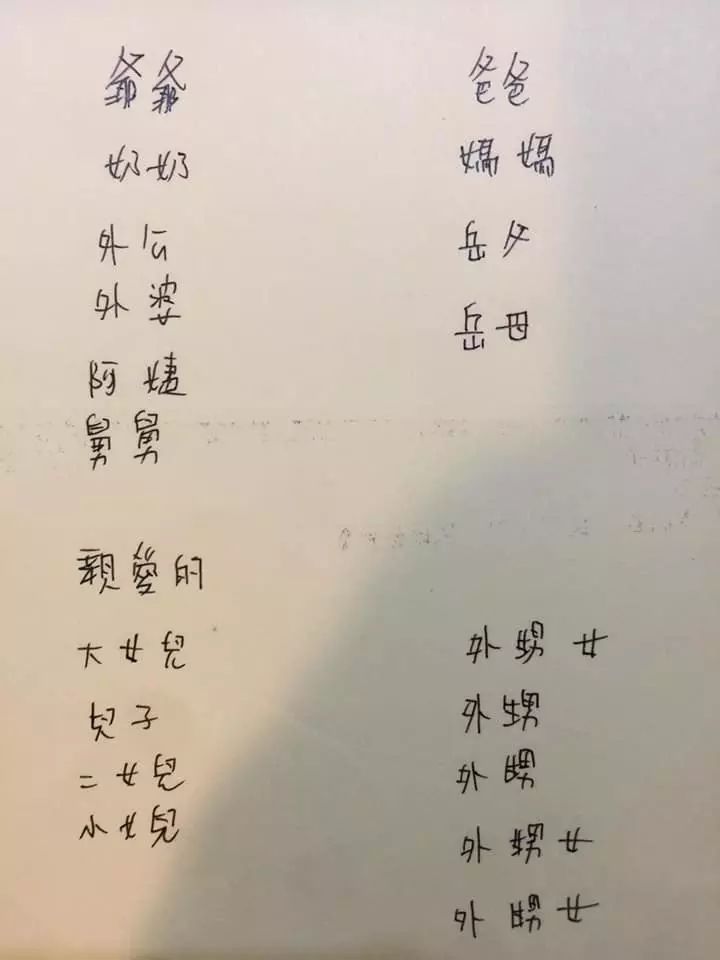 爺爺
奶奶
外公
外婆
阿姨
舅舅
親愛的
大女兒
兒子
二女兒
小女兒
爸爸
媽媽
岳父
岳母
外甥女
外甥
外甥
外甥女
外甥女